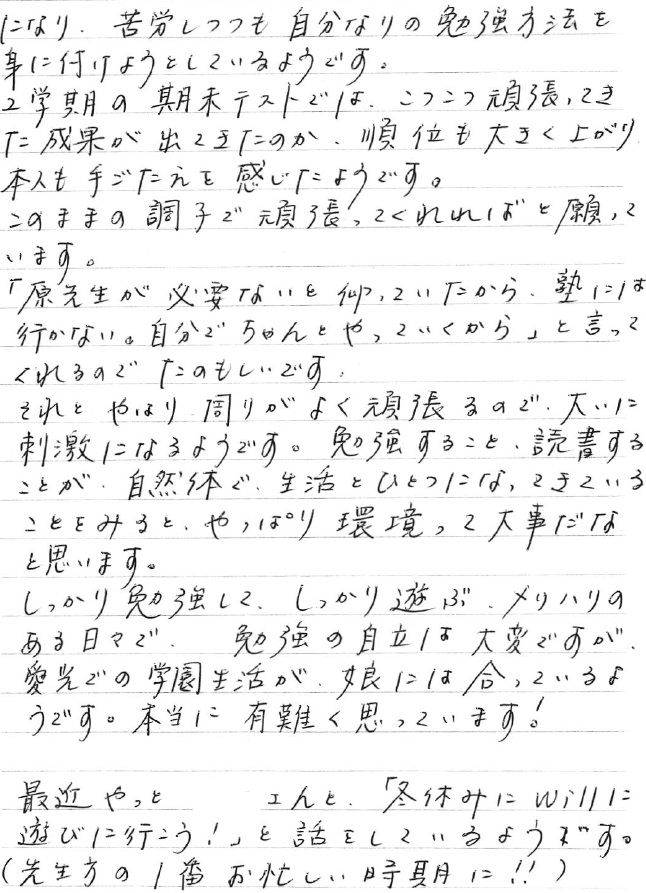 になり、苦労しつつも 自分なりの勉強方法を
身に付けようとしているようです。
2学期の期末テストでは、こつこつ頑張ってき
た成果が出てきたのか、順位も大きく上がり
本人も手ごたえを感じたようです。
このままの調子で頑張ってくれればと願って
います。
「原先生が必要ないと仰っていたから、塾には
行かない。自分でちゃんとやっていくから」と言って
くれるので たのもしいです。
それと やはり 周りがよく頑張るので、大いに
刺激になるようです。勉強すること、読書する
ことが、自然体で、生活とひとつになってきている
ことをみると、やっぱり環境って大事だな
と思います。
しっかり勉強して、しっかり遊ぶ、メリハリの
ある日々で、 勉強の自立は大変ですが、
愛光での学園生活が、娘には合っているよ
うです。本当に有難く思っています！
最近やっと エんと、「冬休みにwillに
遊びに行こう！」と話をしているようです。
(先生方の1番お忙しい時期に!!)